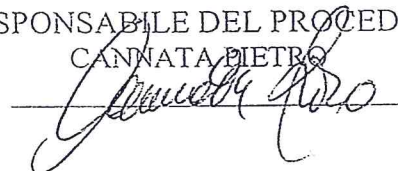 SPONSABILE DEL PROCED
CANNATA PIETRO